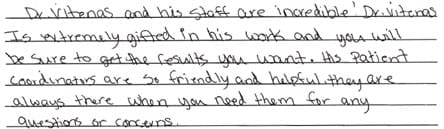 Dr. Vitenas and his staff are incredible! Dr. Vitenas
Is extremely gifted in his work and you will
be sure to get the results you want. His Patient
coordinators are so friendly and helpful. they are
always there when you need them for any
questions or concerns.